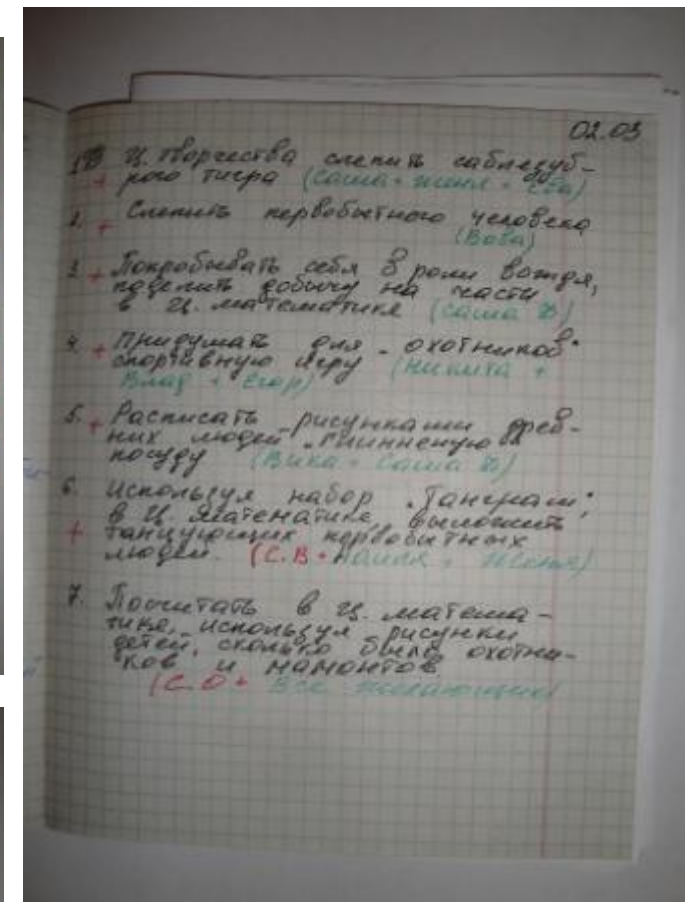 02.03
1. В ц. творчества слепить саблезуб-
+ рого тигра (Саша + Женя +
2. + Слепить первобытного человека
(Вова)
3. + Попробывать себя в роли вождя,
поделить добычу на части
в ц. математике (Саша В)
4. + Придумать для "охотников"
спортивную игру (Никита +
Влад + Егор)
5. + Расписать рисунками древ-
них людей глиняную
посуду (Вика + Саша
6. Используя набор "Танграм",
в ц. математике, выложить
+ танцующих первобытных
людей. (С.В +
7. Посчитать в ц. матема-
тике, используя рисунки
детей, сколько было охотни-
ков и мамонтов
(С.О + Все желающие)